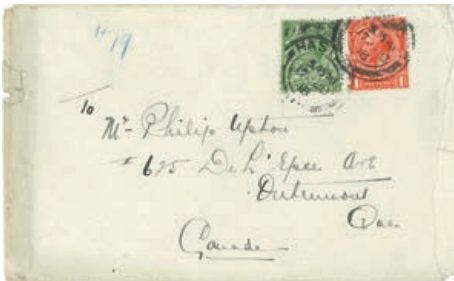 #19
HAS
To
Mr Philip Upton
# 625 De L'Epee Ave
Outremont
Que
Canada